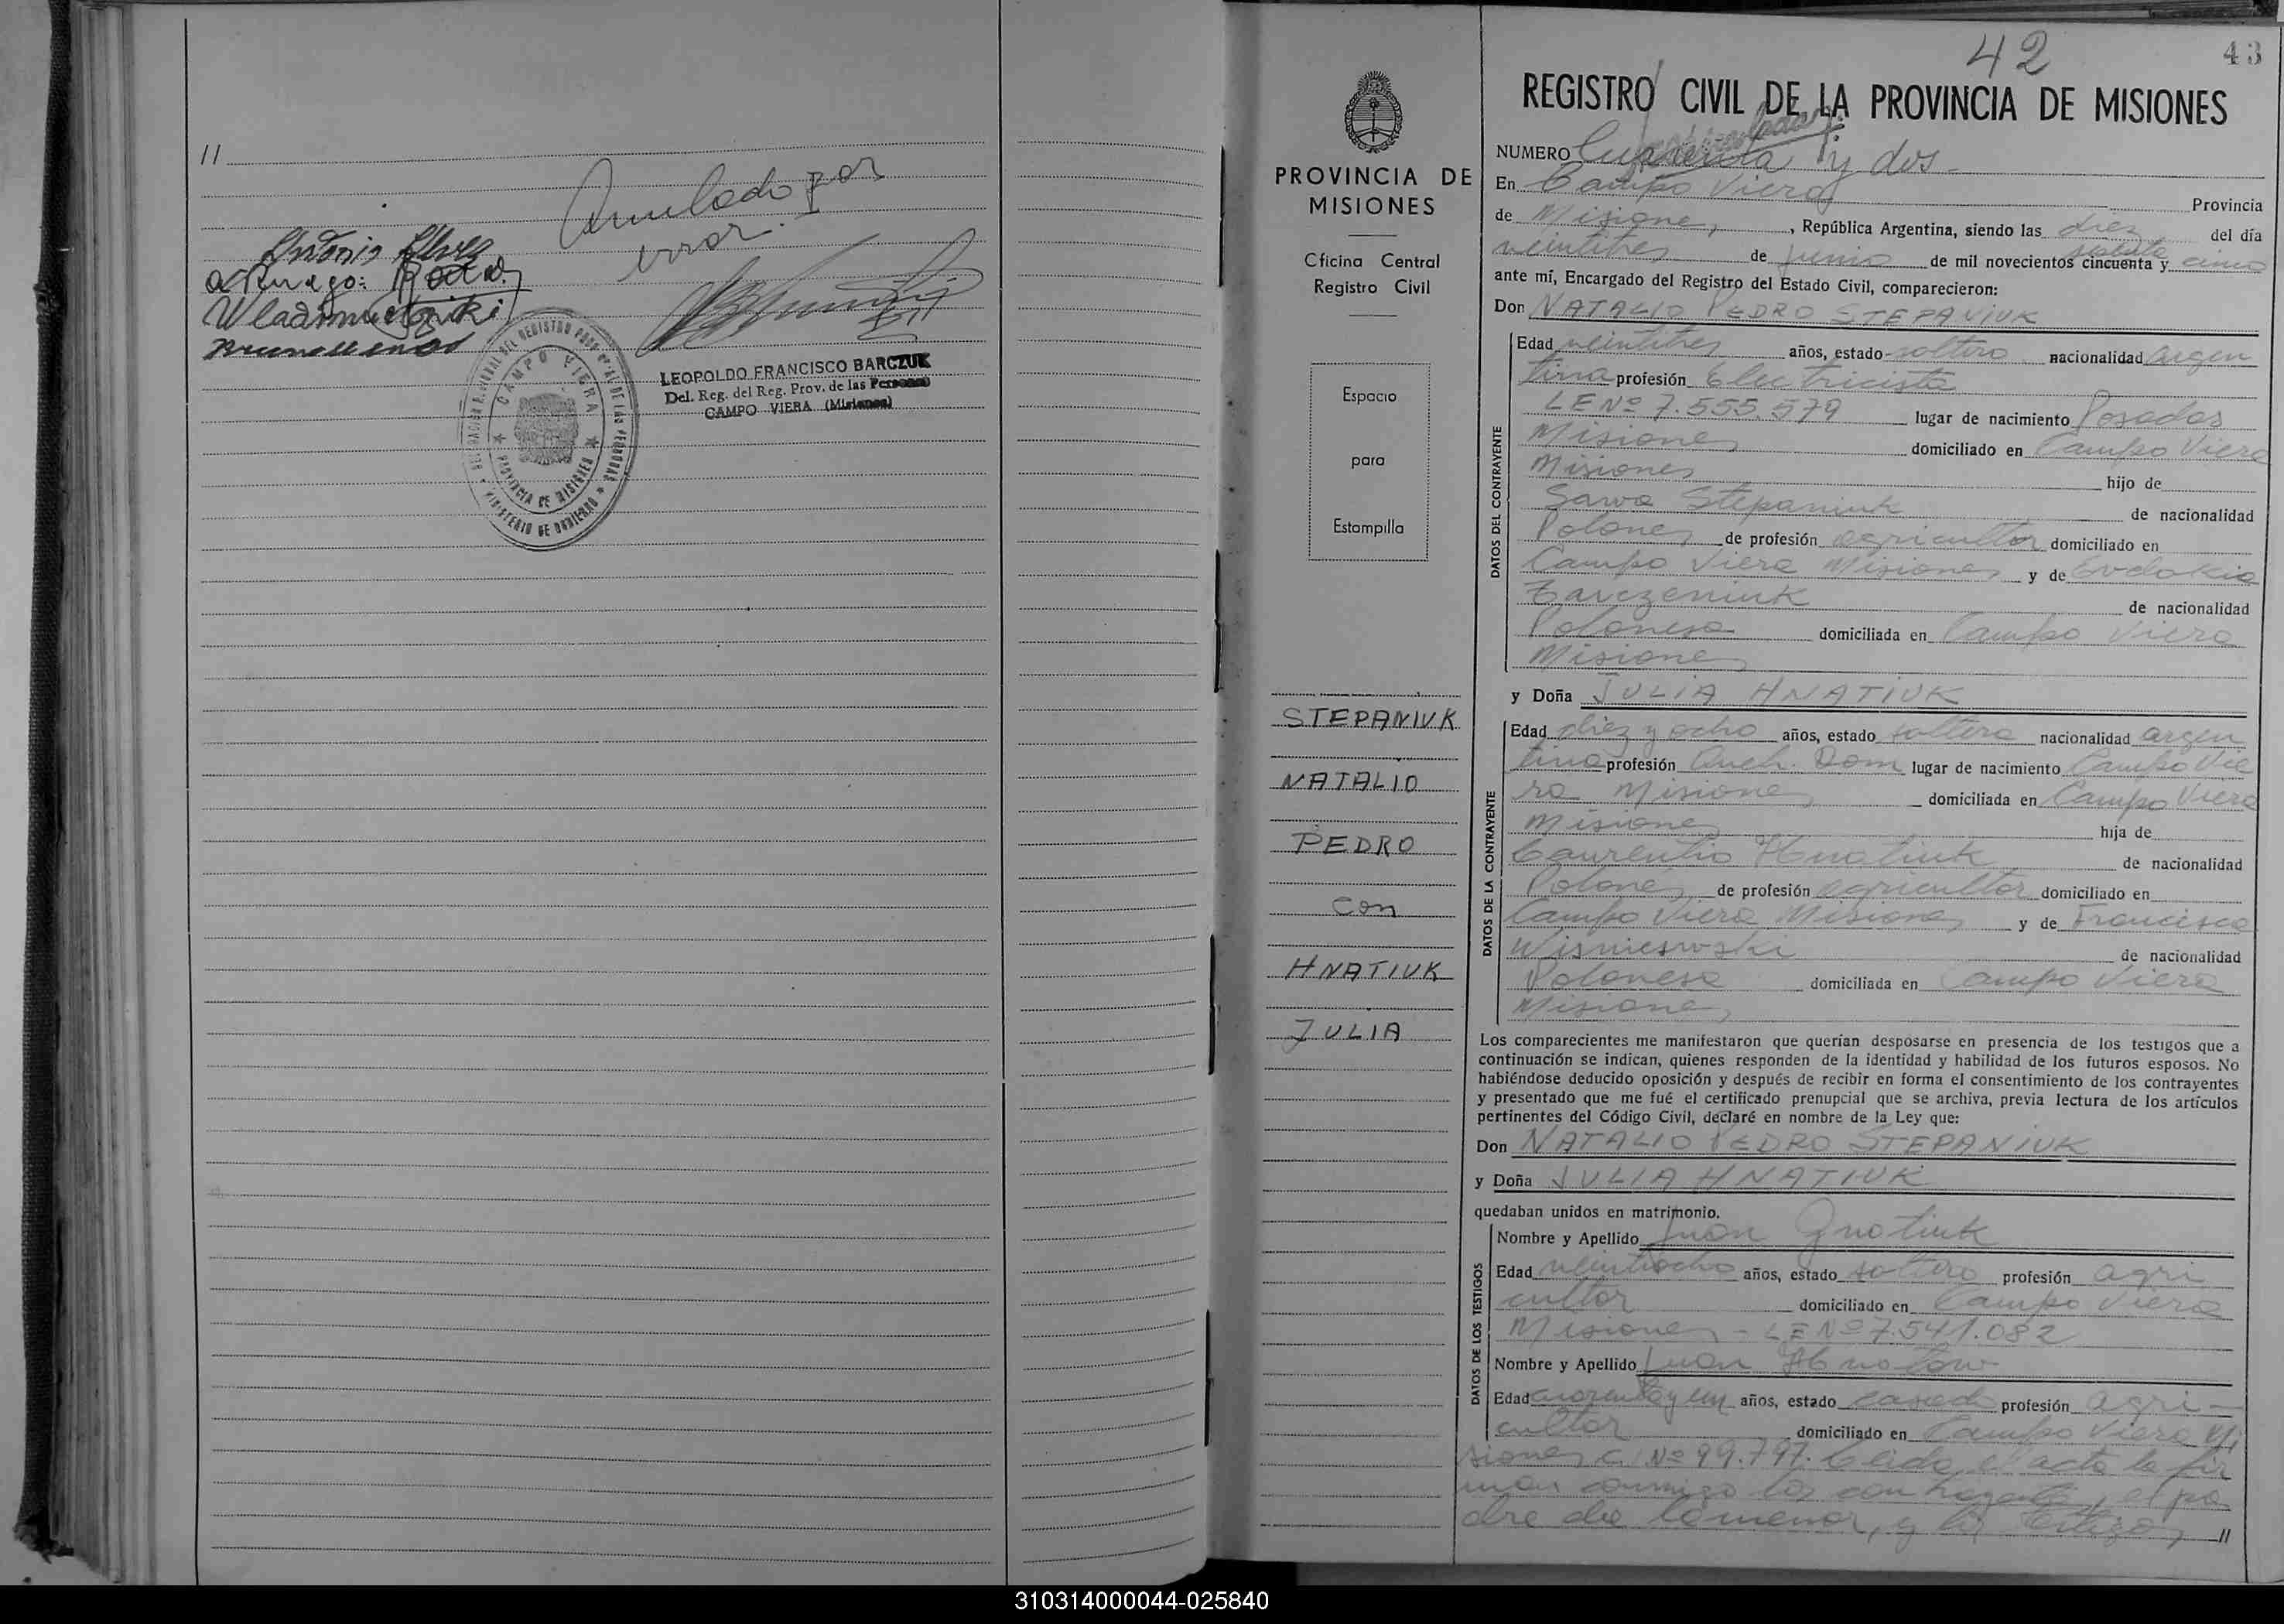 //
Anulado por
error.
Antonio Alvez
a Ruego:
LEOPOLDO FRANCISCO BARCZUK
Del. Reg. del Reg. Prov. de las Personas
CAMPO VIERA (Misiones)
CAMPO VIERA
PROVINCIA DE MISIONES
MINISTERIO DE GOBIERNO
PROVINCIA DE
MISIONES
Oficina Central
Registro Civil
Espacio
para
Estampilla
STEPANIUK
NATALIO
PEDRO
con
HNATIUK
JULIA
42
43
REGISTRO CIVIL DE LA PROVINCIA DE MISIONES
NUMERO Cuarenta y dos.
En Campo Viera Provincia
de Misiones, República Argentina, siendo las diez del día
veintitres de junio de mil novecientos cincuenta y sesenta cinco
ante mí, Encargado del Registro del Estado Civil, comparecieron:
Don NATALIO PEDRO STEPANIUK
DATOS DEL CONTRAYENTE
Edad veintitres años, estado soltero nacionalidad argen
tina profesión Electricista
LE Nº 7.555.579 lugar de nacimiento Posadas
Misiones domiciliado en Campo Viera
Misiones hijo de
Sawa Stepaniuk de nacionalidad
Polones de profesión agricultor domiciliado en
Campo Viera Misiones y de Evdokia
Zavczeniuk de nacionalidad
Polonesa domiciliada en Campo Viera
Misiones
y Doña JULIA HNATIUK
DATOS DE LA CONTRAYENTE
Edad diez y ocho años, estado soltera nacionalidad argen
tina profesión Queh. Dom lugar de nacimiento Campo Vie
ra Misiones domiciliada en Campo Viera
Misiones hija de
Laurentio Hnatiuk de nacionalidad
Polones de profesión agricultor domiciliado en
Campo Viera Misiones y de Francisca
Wisniewski de nacionalidad
Polonesa domiciliada en Campo Viera
Misiones
Los comparecientes me manifestaron que querían desposarse en presencia de los testigos que a
continuación se indican, quienes responden de la identidad y habilidad de los futuros esposos. No
habiéndose deducido oposición y después de recibir en forma el consentimiento de los contrayentes
y presentado que me fué el certificado prenupcial que se archiva, previa lectura de los artículos
pertinentes del Código Civil, declaré en nombre de la Ley que:
Don NATALIO PEDRO STEPANIUK
y Doña JULIA HNATIUK
quedaban unidos en matrimonio.
DATOS DE LOS TESTIGOS
Nombre y Apellido Juan Gnatiuk
Edad veintiocho años, estado soltero profesión agri
cultor domiciliado en Campo Viera
Misiones - LE Nº 7.541.082
Nombre y Apellido Juan
Edad cuarenta y un años, estado casado profesión agri-
cultor domiciliado en Campo Viera Mi
siones C. Nº 99.797. Leida el acta la fir
man conmigo los contrayentes, el pa
dre de la menor, y los testigos, //
310314000044-025840